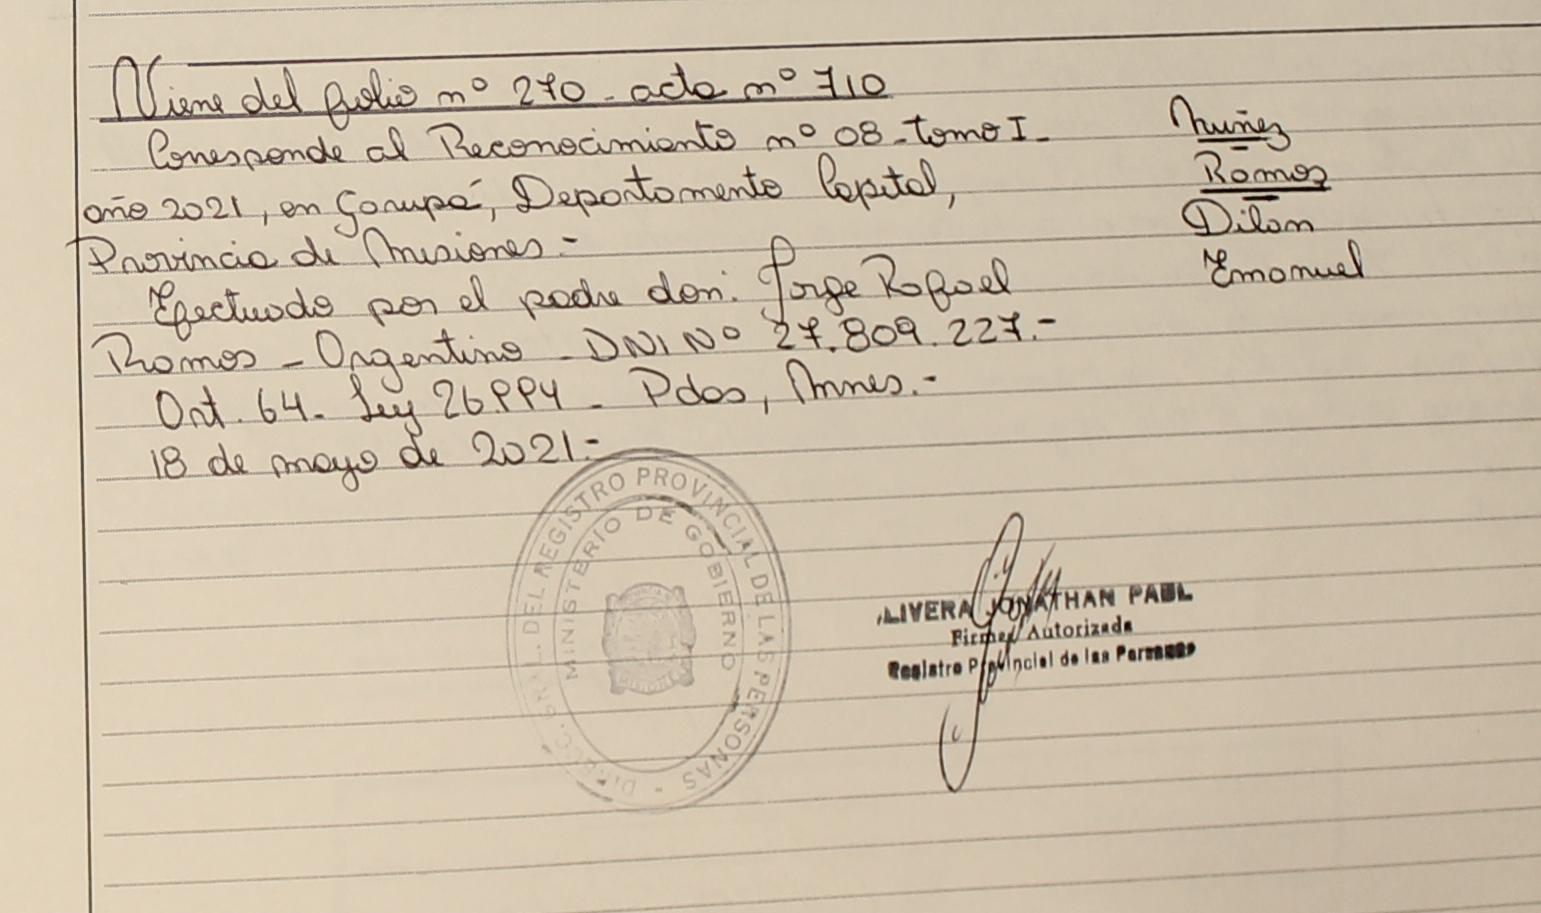 Viene del folio nº 270 - acta nº 710
Corresponde al Reconocimiento nº 08 - tomo I -
año 2021, en Garupá, Departamento Capital,
Provincia de Misiones.-
Efectuado por el padre don: Jorge Rafael
Ramos - Argentino - DNI Nº 27.809.227.-
Art. 64 - Ley 26.994 - Pdas, Mnes.-
18 de mayo de 2021.-
Nuñez
Ramos
Dilan
Emanuel
DIRECC. GRAL. DEL REGISTRO PROVINCIAL DE LAS PERSONAS -
MINISTERIO DE GOBIERNO
MISIONES
LIVERA JONATHAN PABL
Firma Autorizada
Registro Provincial de las Personas